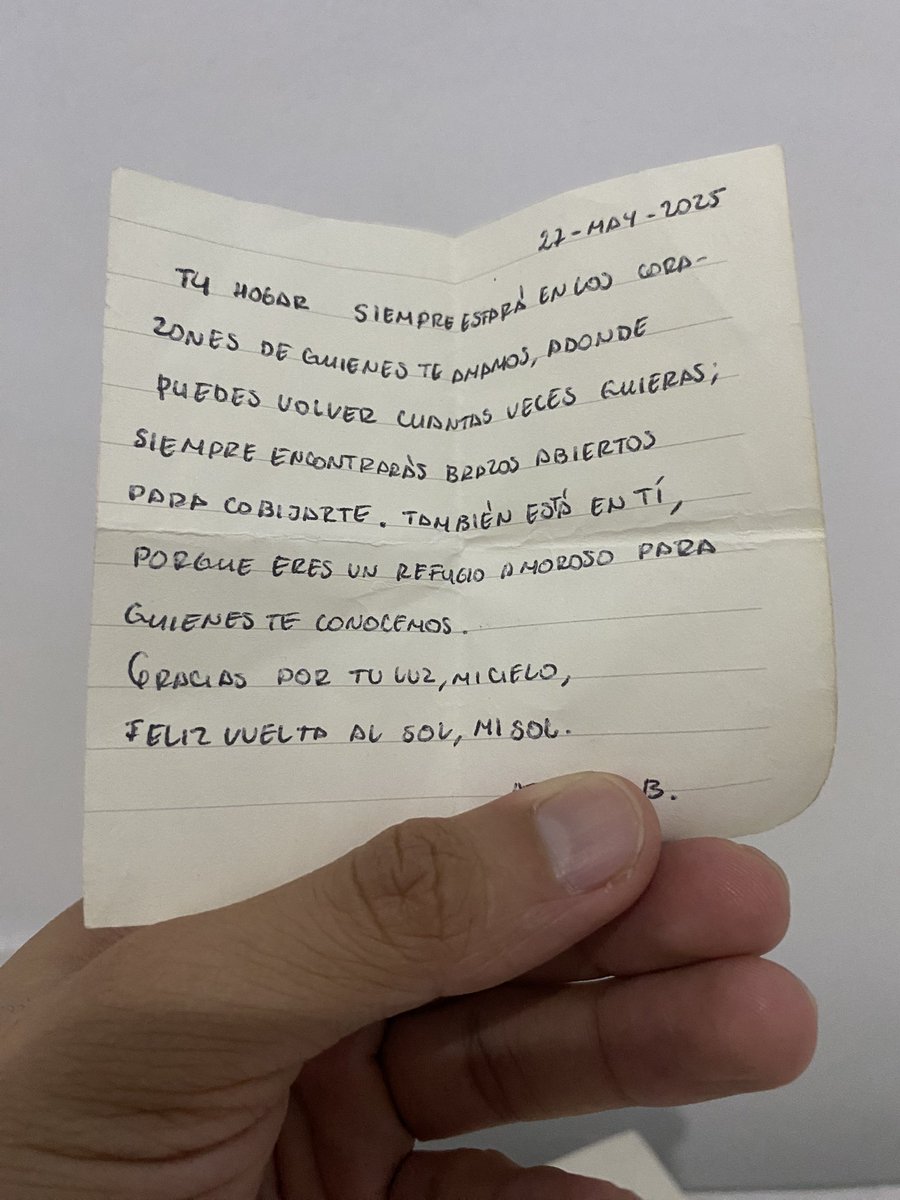 27-MAY-2025
TU HOGAR SIEMPRE ESTARÁ EN LOS CORA-
ZONES DE QUIENES TE AMAMOS, ADONDE
PUEDES VOLVER CUANTAS VECES QUIERAS;
SIEMPRE ENCONTRARÁS BRAZOS ABIERTOS
PARA COBIJARTE. TAMBIÉN ESTÁ EN TÍ,
PORQUE ERES UN REFUGIO AMOROSO PARA
QUIENES TE CONOCEMOS.
GRACIAS POR TU LUZ, MI CIELO,
FELIZ VUELTA AL SOL, MI SOL.
B.